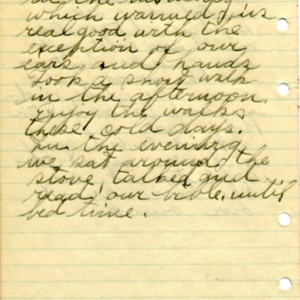 which warmed us
real good with the
exception of our
ears and hands
Took a short walk
in the afternoon.
enjoy the walks
these cold days.
In the evening
we sat around the
stove, talked and
read our bible until
bed time.